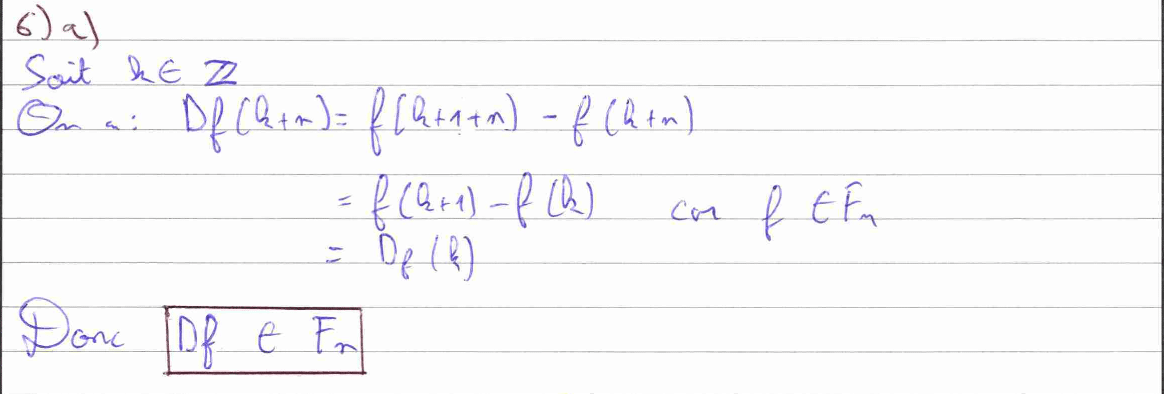 6) a)
Soit k ∈ ℤ
On a : Df(k+n) = f(k+1+n) - f(k+n)
= f(k+1) - f(k) car f ∈ Fn
= Df(k)
Donc Df ∈ Fn